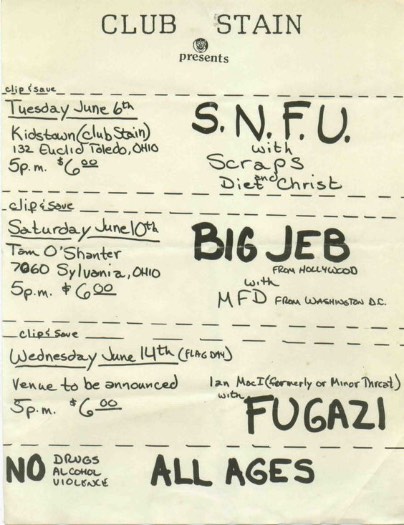 CLUB STAIN
presents
clip & save
Tuesday June 6th
Kidstown (club Stain)
132 Euclid Toledo, OHIO
5p.m. $6.00
S.N.F.U.
with
Scraps
and
Diet Christ
clip & save
Saturday June 10th
Tam O'Shanter
7060 Sylvania, OHIO
5p.m. $6.00
BIG JEB
FROM HOLLYWOOD
with
MFD FROM WASHINGTON D.C.
clip & save
Wednesday June 14th (FLAG DAY)
Venue to be announced
5p.m. $6.00
Ian MacI (formerly or Minor Threat)
with
FUGAZI
NO DRUGS
ALCOHOL
VIOLENCE
ALL AGES